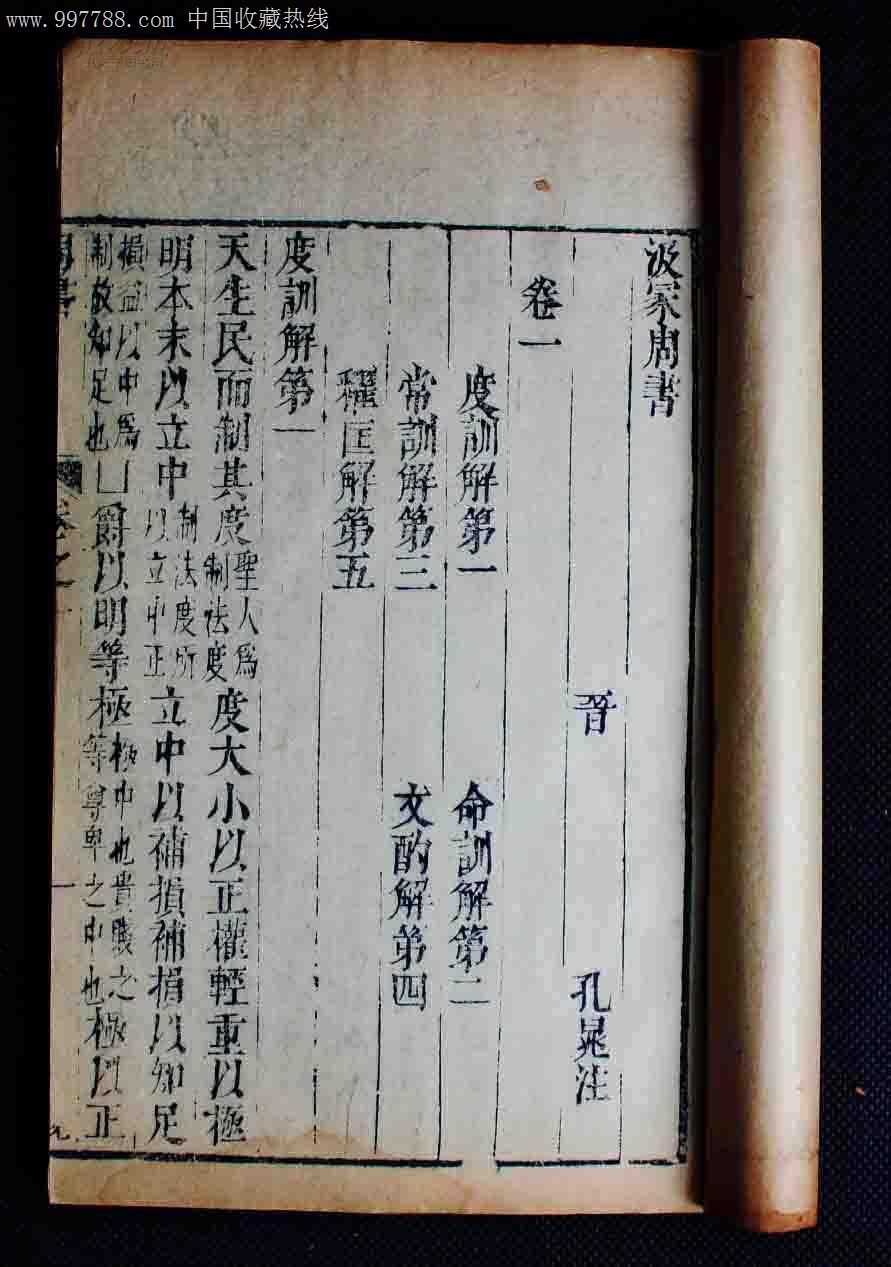 www.997788.com 中国收藏热线
汲冢周書
晉 孔晁注
卷一
度訓解第一 命訓解第二
常訓解第三 文酌解第四
糴匡解第五
度訓解第一
天生民而制其度聖人爲制法度度大小以正權輕重以極
明本末以立中制法度所以立中正立中以補損補損以知足
損益以中爲制故知足也凵爵以明等極極中也貴賤之等尊卑之中也極以正
周書 卷之一 一